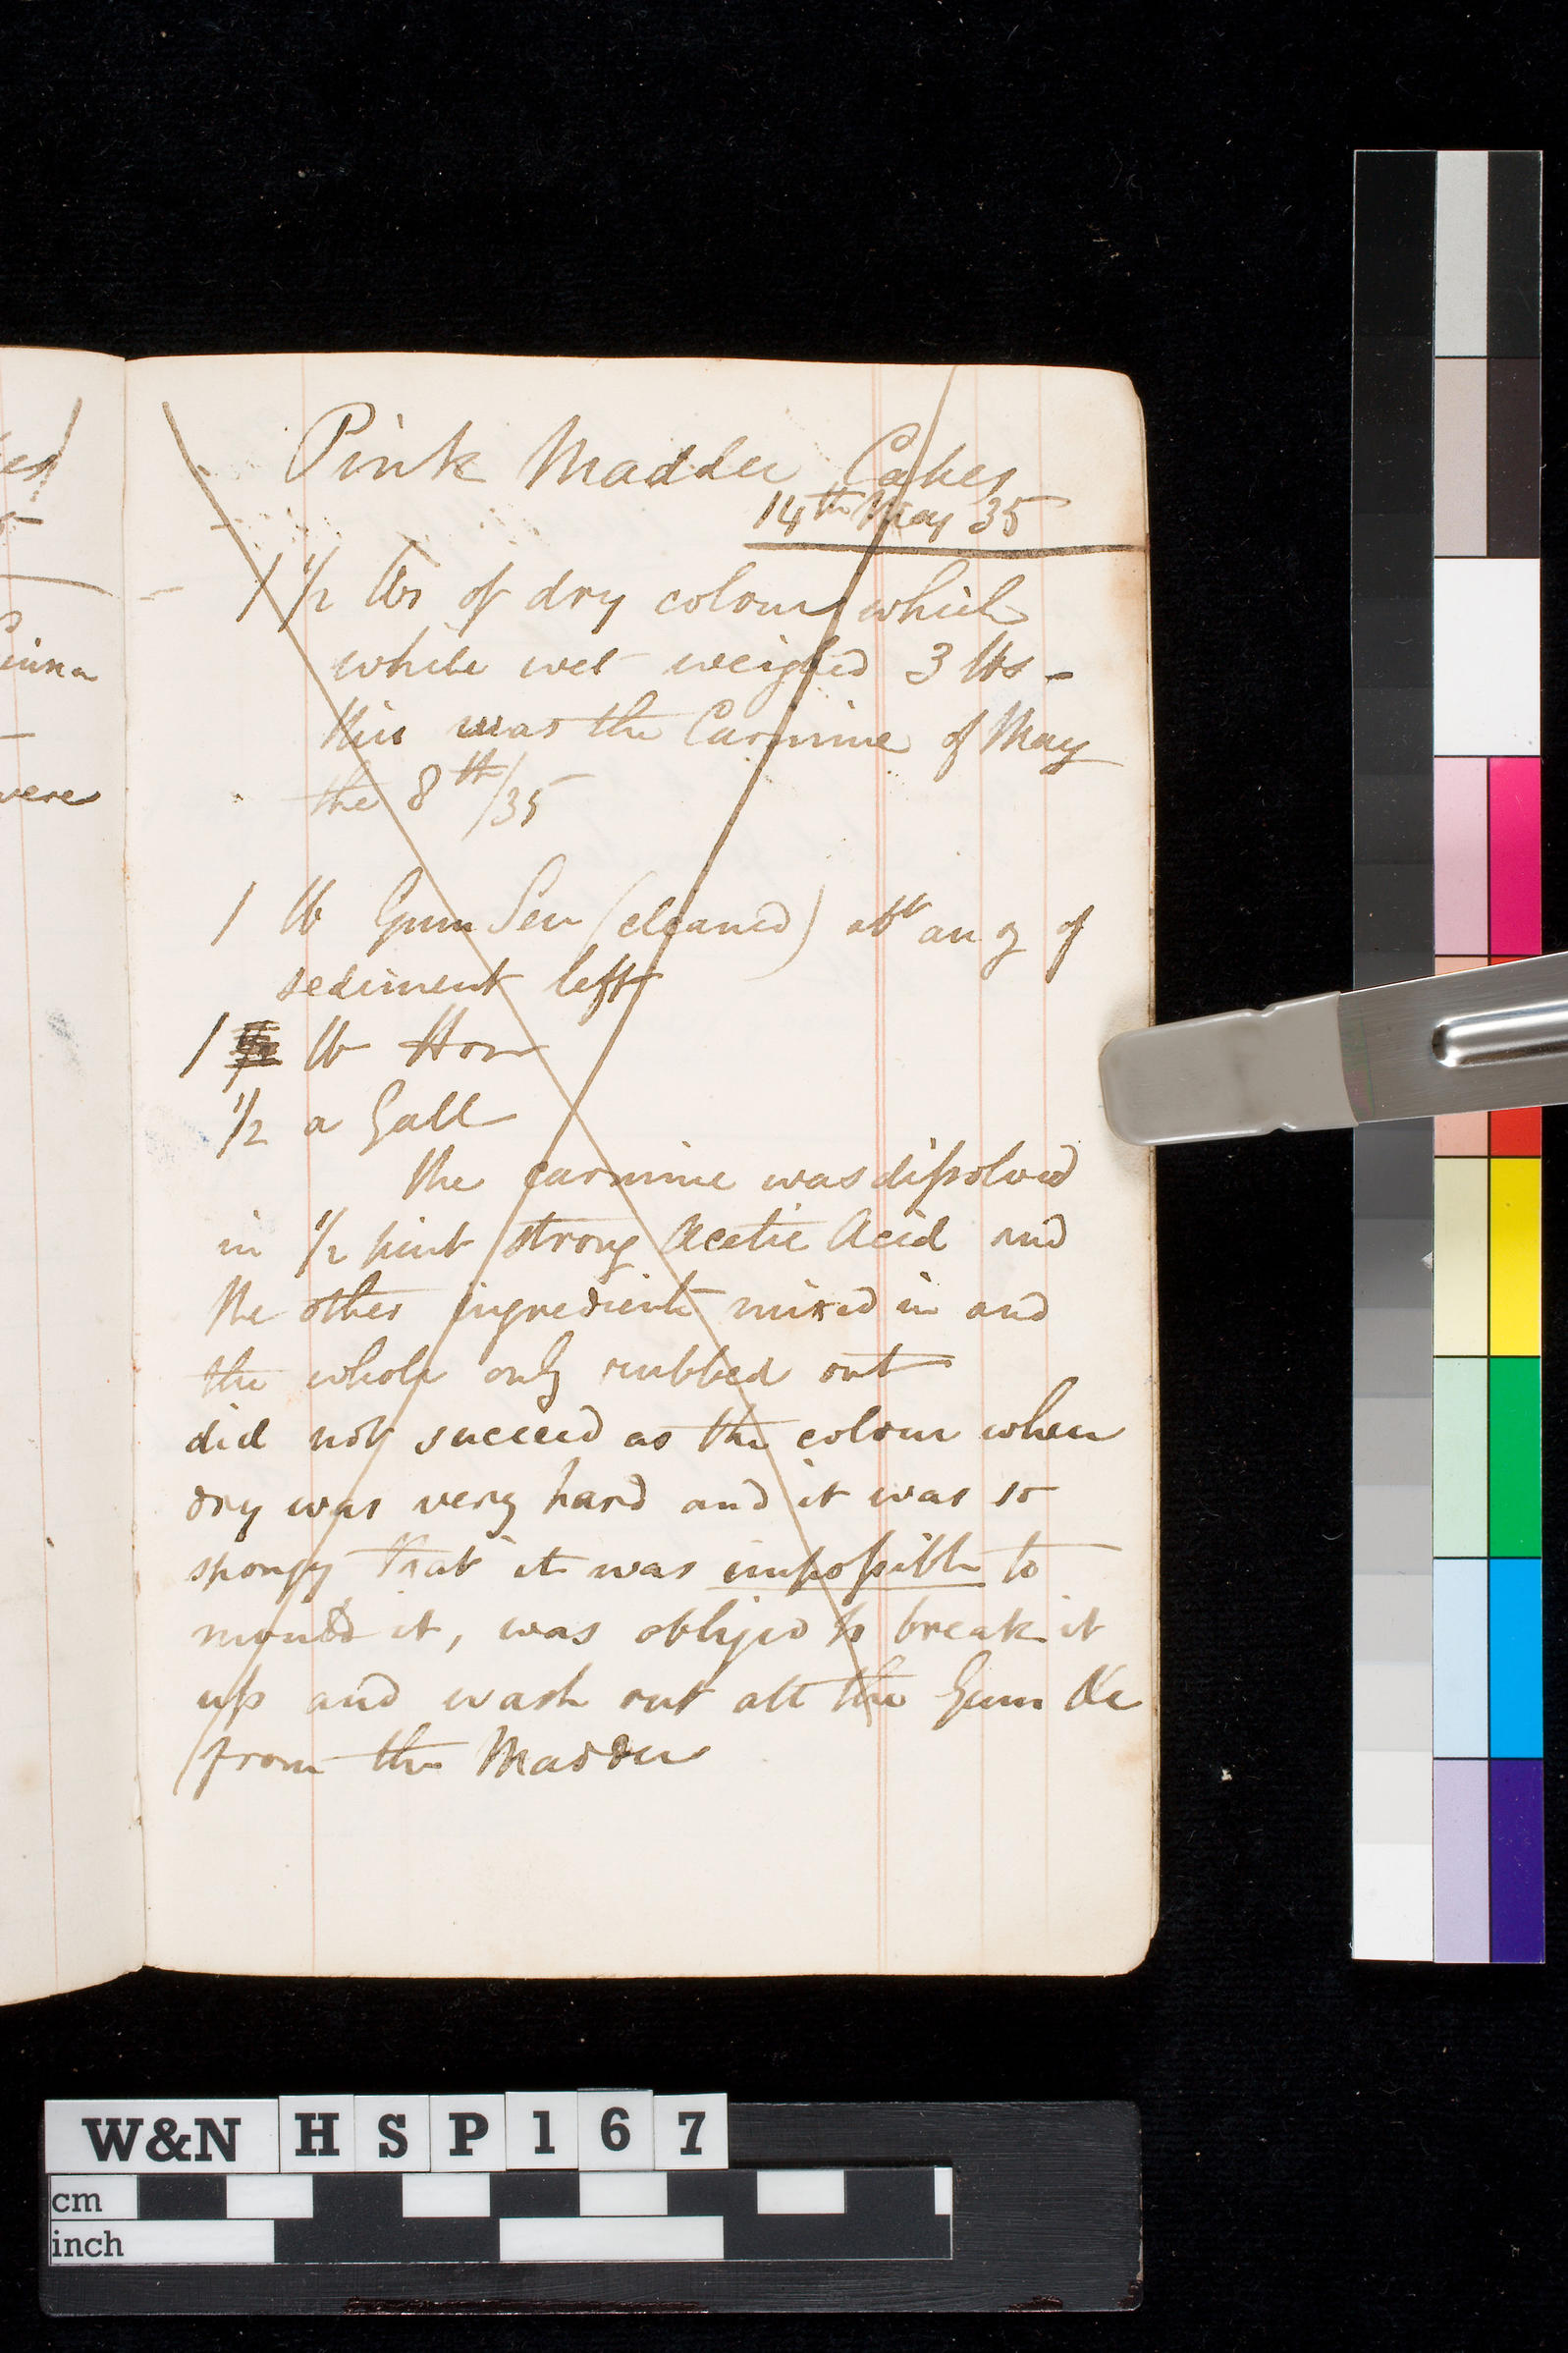 Pink Madder Cakes
14th May 35
1 1/2 lbs of dry colour which
while wet weighed 3 lbs -
this was the Carmine of May
the 8th/35
1 lb Gum Sen (cleaned) abt an oz of
sediment left
1 lb Hon
1/2 a Gall
The carmine was dissolved
in 1/2 pint strong Acetic Acid and
the other ingredients mixed in and
the whole only rubbed out
did not succeed as the colour when
dry was very hard and it was so
spongy that it was impossible to
mould it, was obliged to break it
up and wash out all the Gum &c
from the Madder
were
W&N HSP167
cm
inch